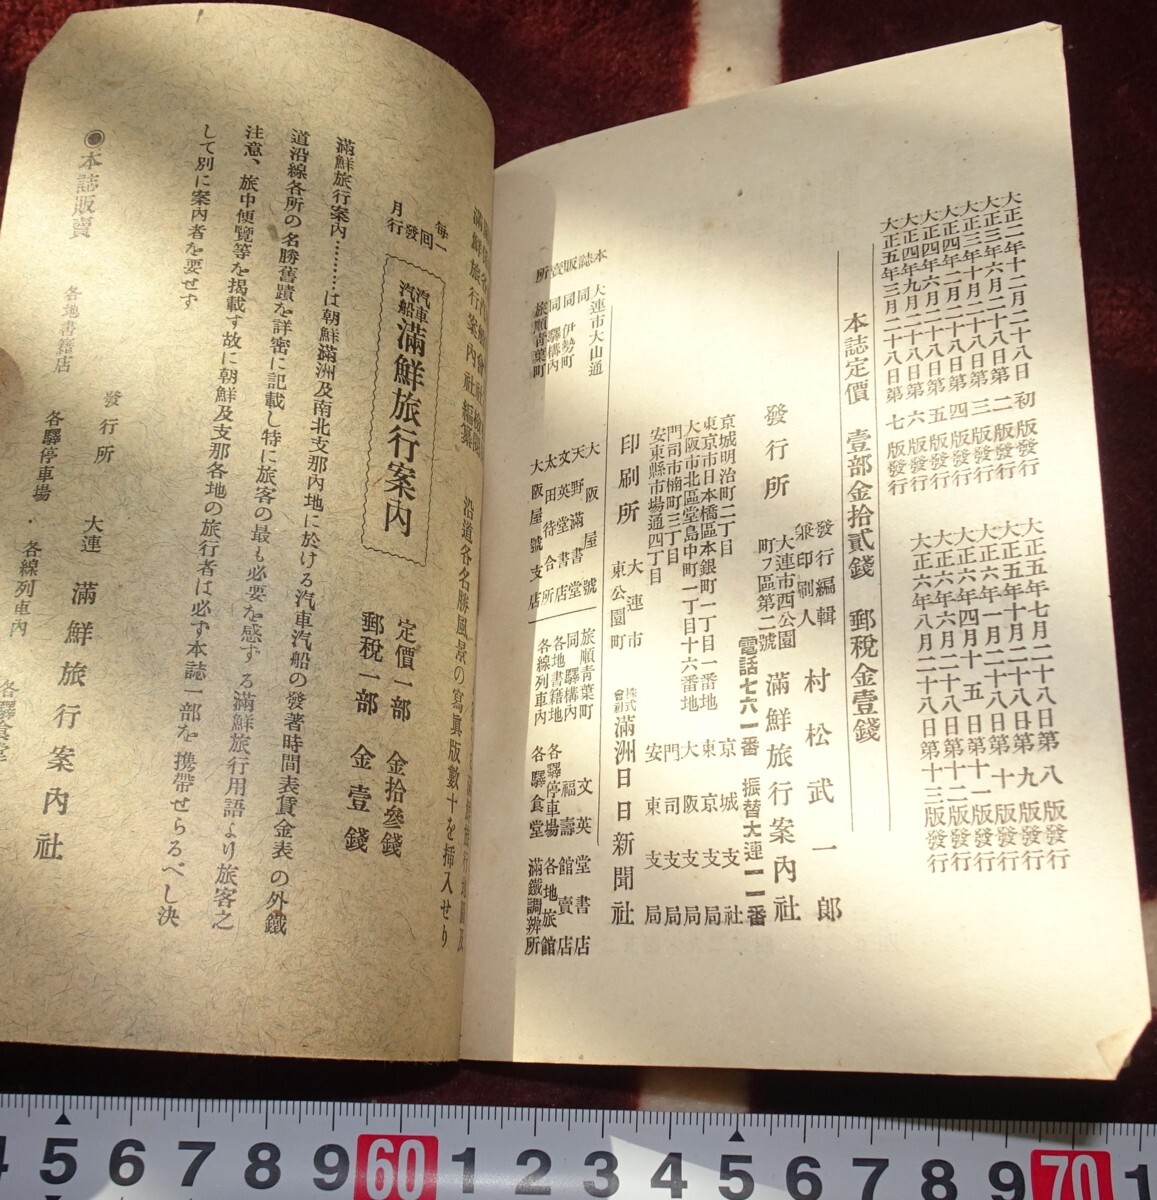 大正二年十二月二十八日 初版發行
大正三年六月二十八日第二版發行
大正三年十月二十八日第三版發行
大正四年二月二十八日第四版發行
大正四年六月二十八日第五版發行
大正四年九月二十八日第六版發行
大正五年三月二十八日第七版發行
大正五年七月二十八日第八版發行
大正五年十月二十八日第九版發行
大正六年一月二十八日第十版發行
大正六年四月十五日第十一版發行
大正六年六月二十八日第十二版發行
大正六年八月二十八日第十三版發行
本誌定價 壹部金拾貳錢 郵稅金壹錢
發行編輯兼印刷人 村松武一郎
發行所
大連市西公園町7區第二號
滿鮮旅行案內社
電話七六一番 振替大連一一番
京城明治町二丁目 京城支社
東京市日本橋區本銀町一丁目一番地 東京支局
大阪市北區堂島中町一丁目十六番地 大阪支局
門司市楠町三丁目 門司支局
安東縣市場通四丁目 安東支局
印刷所 大連市東公園町 株式會社滿洲日日新聞社
本誌販賣所
大連市大山通 大阪屋號
同 伊勢町
同 驛構內
旅順靑葉町 大阪屋號支店
旅順靑葉町 文英堂書店
同驛構內
各地書籍店
各線列車內
各驛停車場
各驛食堂
各地旅館
滿鐵調辨所
沿道各名勝風景の寫眞版數十を挿入せり
每月一回發行
汽車汽船滿鮮旅行案內
定價一部 金拾參錢
郵稅一部 金壹錢
滿鮮旅行案內………は朝鮮滿洲及南北支那內地に於ける汽車汽船の發著時間表賃金表の外鐵
道沿線各所の名勝舊蹟を詳密に記載し特に旅客の最も必要を感ずる滿鮮旅行用語より旅客之
注意、旅中便覽等を掲載す故に朝鮮及支那各地の旅行者は必ず本誌一部を携帶せらるべし決
して別に案內者を要せず
發行所 大連 滿鮮旅行案內社
◉本誌販賣 各地書籍店 各驛停車場・各線列車內 各驛食堂
4 5 6 7 8 9 60 1 2 3 4 5 6 7 8 9 70 1